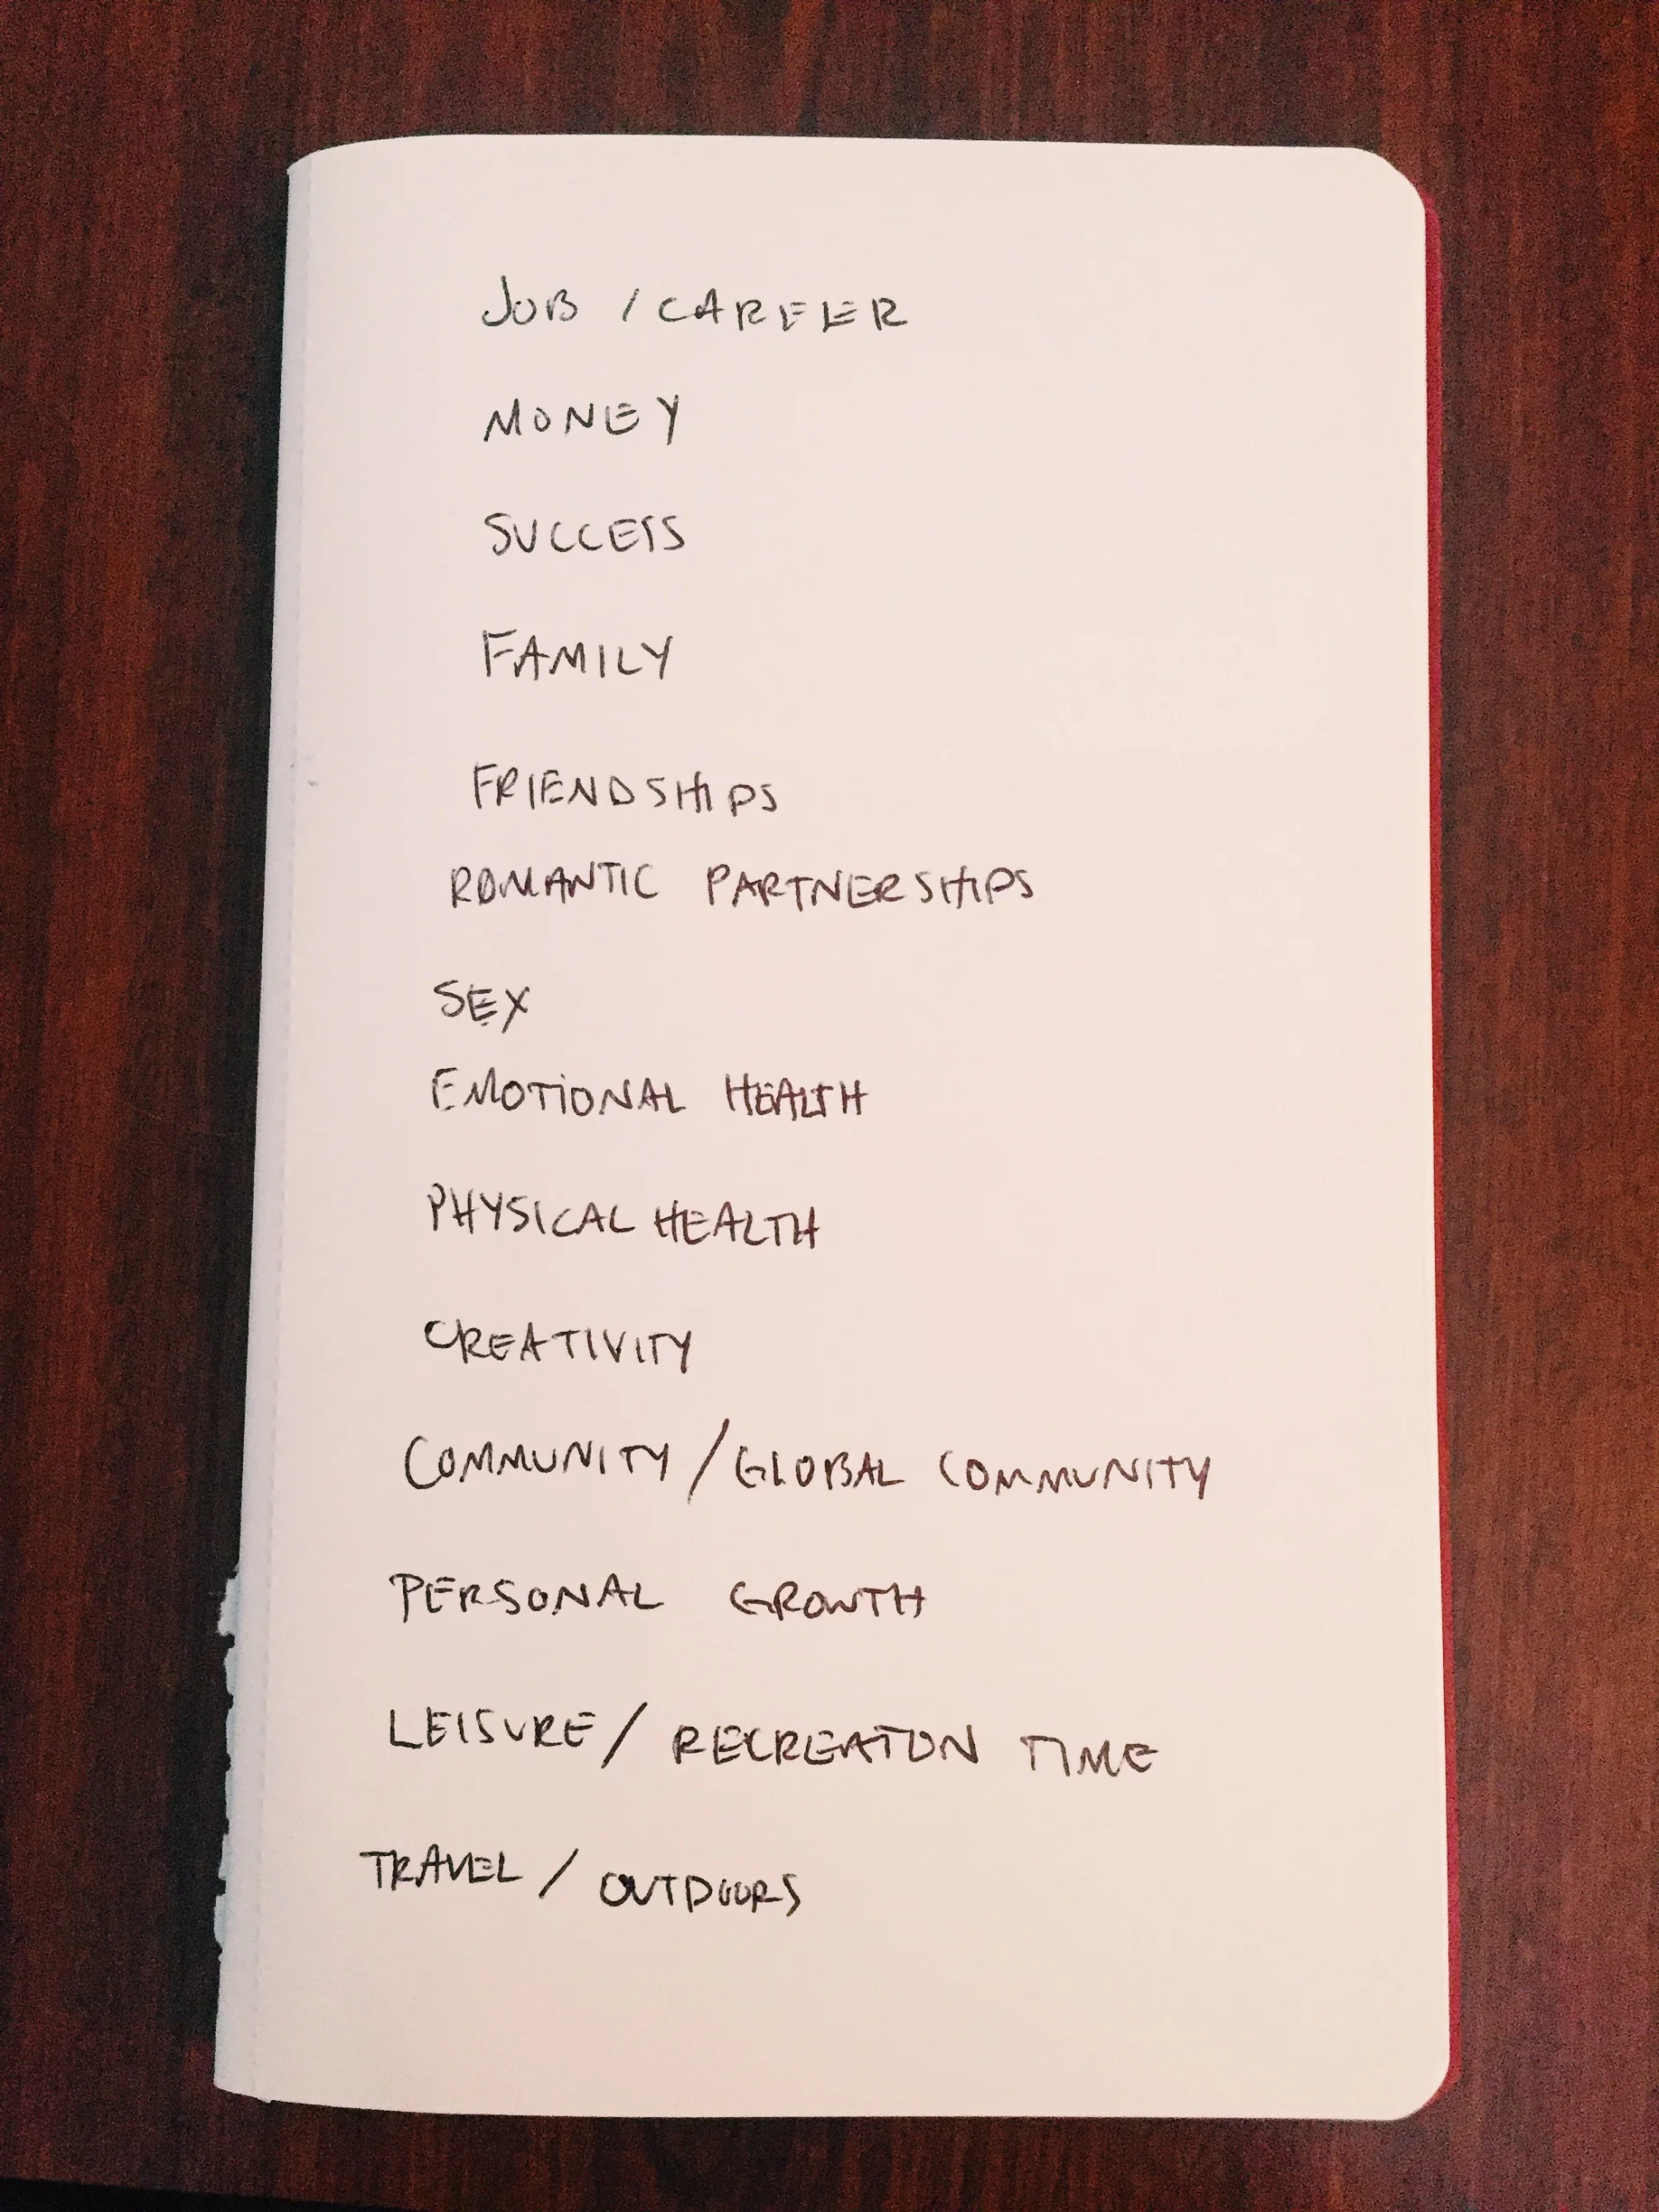 JOB / CAREER
MONEY
SUCCESS
FAMILY
FRIENDSHIPS
ROMANTIC PARTNERSHIPS
SEX
EMOTIONAL HEALTH
PHYSICAL HEALTH
CREATIVITY
COMMUNITY / GLOBAL COMMUNITY
PERSONAL GROWTH
LEISURE / RECREATON TIME
TRAVEL / OUTDOORS